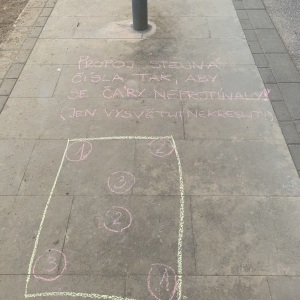 PROPOJ STEJNÁ
ČÍSLA TAK, ABY
SE ČÁRY NEPROTÍNALY!
JEN VYSVĚTLI NEKRESLI
1 2
3
2
3 1